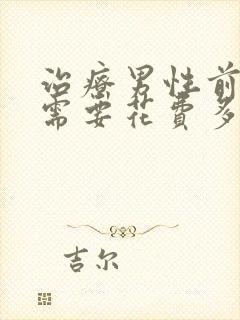 治療男性前
需要花費多
吉尔